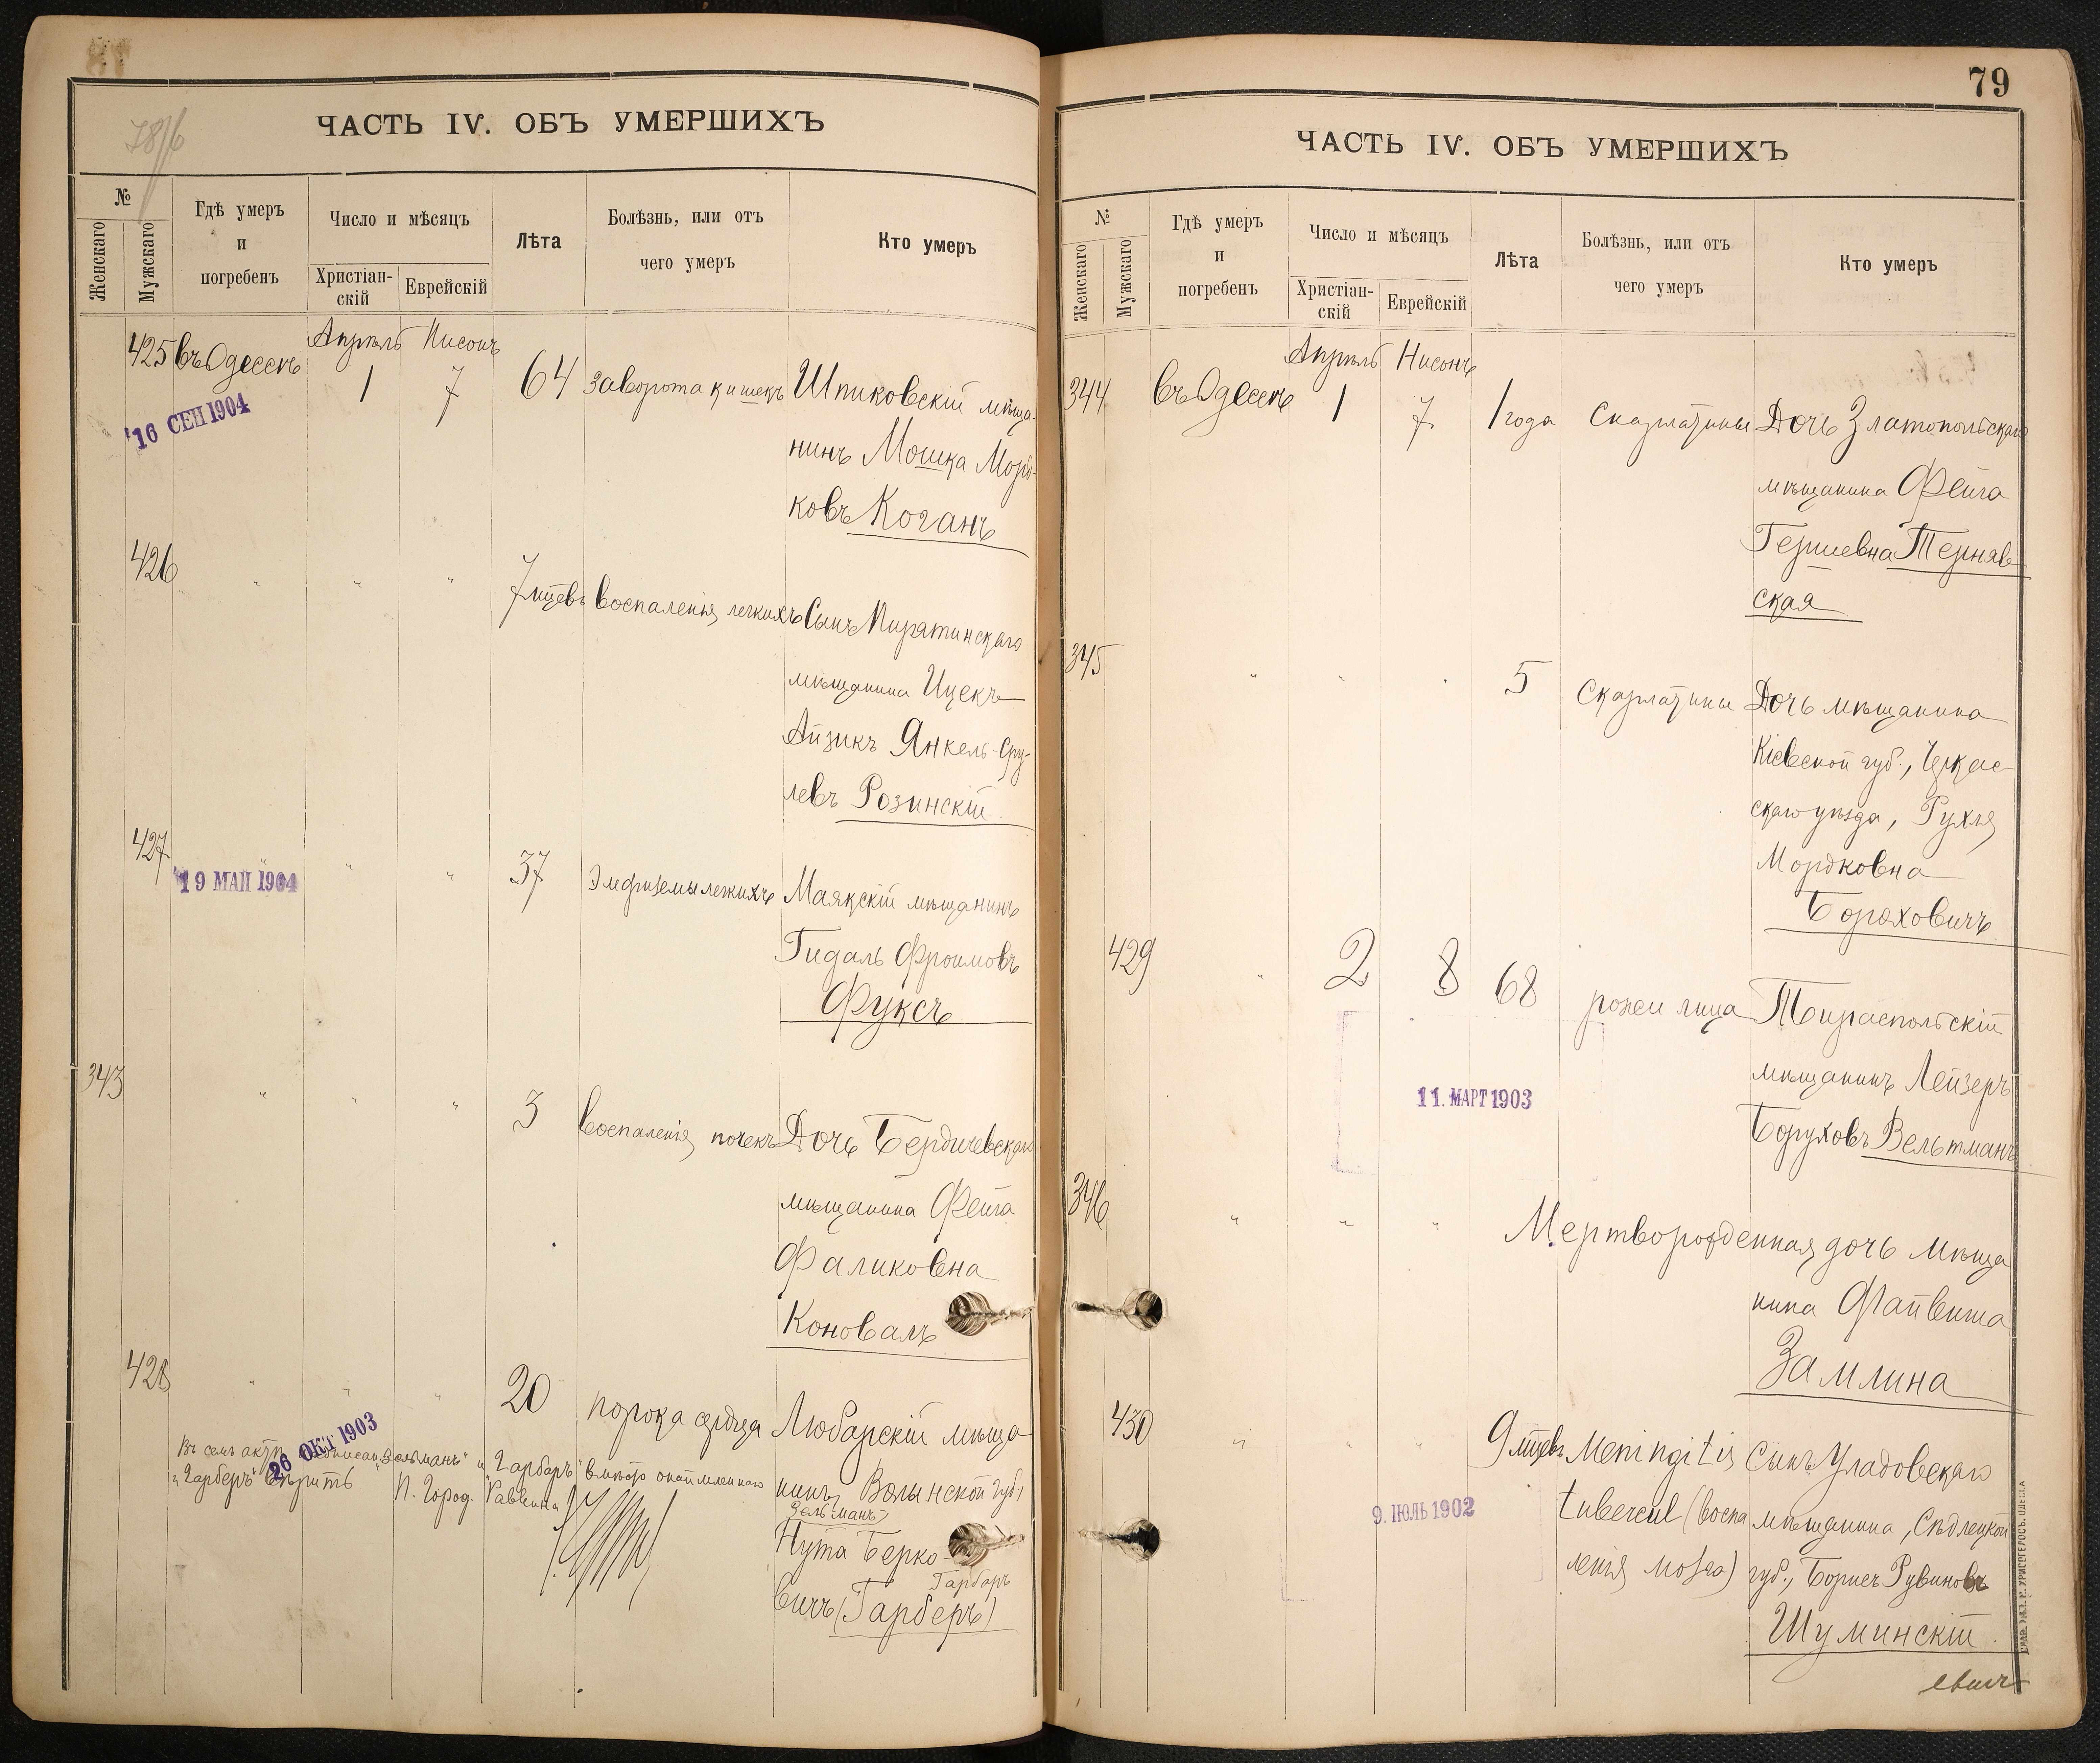 78/б
ЧАСТЬ IV. ОБЪ УМЕРШИХЪ
№
Женскаго
Мужскаго
Гдѣ умеръ
и
погребенъ
Число и мѣсяцъ
Христіан-
скій
Еврейскій
Лѣта
Болѣзнь, или отъ
чего умеръ
Кто умеръ
Апрѣль Нисонъ
425 въ Одессѣ 1 7 64 заворота кишекъ Шпиковскій мѣща-
16 СЕН 1904
нинъ Мошка Морд-
ковъ Коганъ
426 " " " 7 мцевъ воспаленія легкихъ Сынъ Пирятинскаго
мѣщанина Ицекъ-
Айзикъ Янкель-Сру-
левъ Розинскій
427 " " " 37 Эмфиземы легкихъ Маякскій мѣщанинъ
19 МАЙ 1904
Гидаль Фроимовъ
Фуксъ
343 " " " 3 воспаленія почекъ Дочь Бердичевскаго
мѣщанина Фейга
Фаликовна
Коновалъ
428 " " " 20 порока сердца Любарскій мѣща
26 ОКТ 1903
Въ семъ актѣ "Зельманъ" и "Гарбаръ" вмѣсто
"Гарберъ" вѣрить П. Город. Раввина
нинъ, Волынской губ.,
Зельманъ
Нута Берко-
Гарбаръ
вичъ (Гарберъ)
79
ЧАСТЬ IV. ОБЪ УМЕРШИХЪ
№
Женскаго
Мужскаго
Гдѣ умеръ
и
погребенъ
Число и мѣсяцъ
Христіан-
скій
Еврейскій
Лѣта
Болѣзнь, или отъ
чего умеръ
Кто умеръ
Апрѣль Нисонъ
344 въ Одессѣ 1 7 1 года Скарлатины Дочь Златопольскаго
мѣщанина Фейга
Гершевна Терняв
ская
345 " " " 5 Скарлатины Дочь мѣщанина
Кіевской губ., Черкас
скаго уѣзда, Рухля
Мордковна
Бороховичъ
429 " 2 8 68 рожи лица Тираспольскій
мѣщанинъ Лейзеръ
11. МАРТ 1903
Боруховъ Вельтманъ
346 " " " Мертворожденная дочь мѣща
нина Файвиша
Замлина
430 " " " 9 мцевъ Meningitis Сынъ Уладовскаго
9. ІЮЛЬ 1902
tubercul (воспа мѣщанина, Сѣдлецкой
ленія мозга) губ., Борисъ Рувиновъ
Шуминскій
евичъ